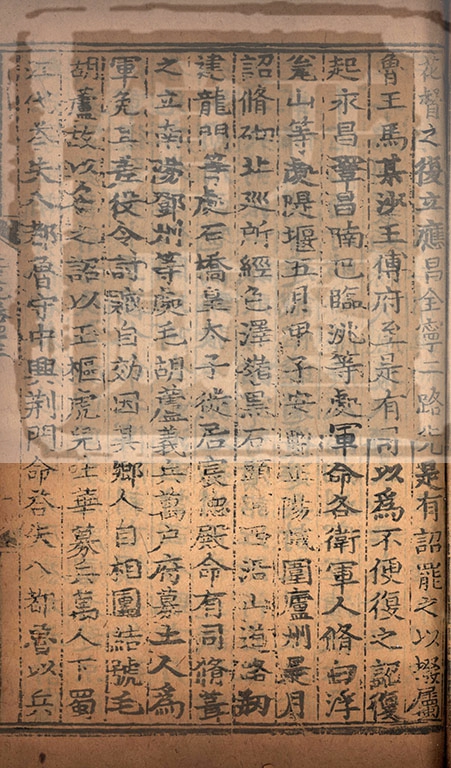 之後立應昌全寧二路先是有詔罷之以撥屬
魯王馬某沙王傅府至是有司以爲不便復之詔復
起永昌鞏昌巴臨洮等處軍命各衛軍人脩白浮
瓮山等處隄堰五月甲子安豐正陽賊圍廬州是月
詔脩砌北巡所經色澤嶺黑石頭河西沿山道路創
建龍門等處石橋皇太子徙居宸德殿命有司脩葺
之立南陽鄧州等處毛胡蘆義兵萬户府募土人爲
軍免其差役令討賊自効因其鄉人自相團結號毛
胡蘆故以名之詔以玉樞虎兒吐華募兵萬人下蜀
江代荅失八都魯守中興荆門命荅失八都魯以兵